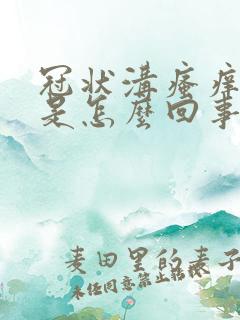 冠状溝瘙痒
是怎麽回事
麦田里的麦子
未经同意禁止转载